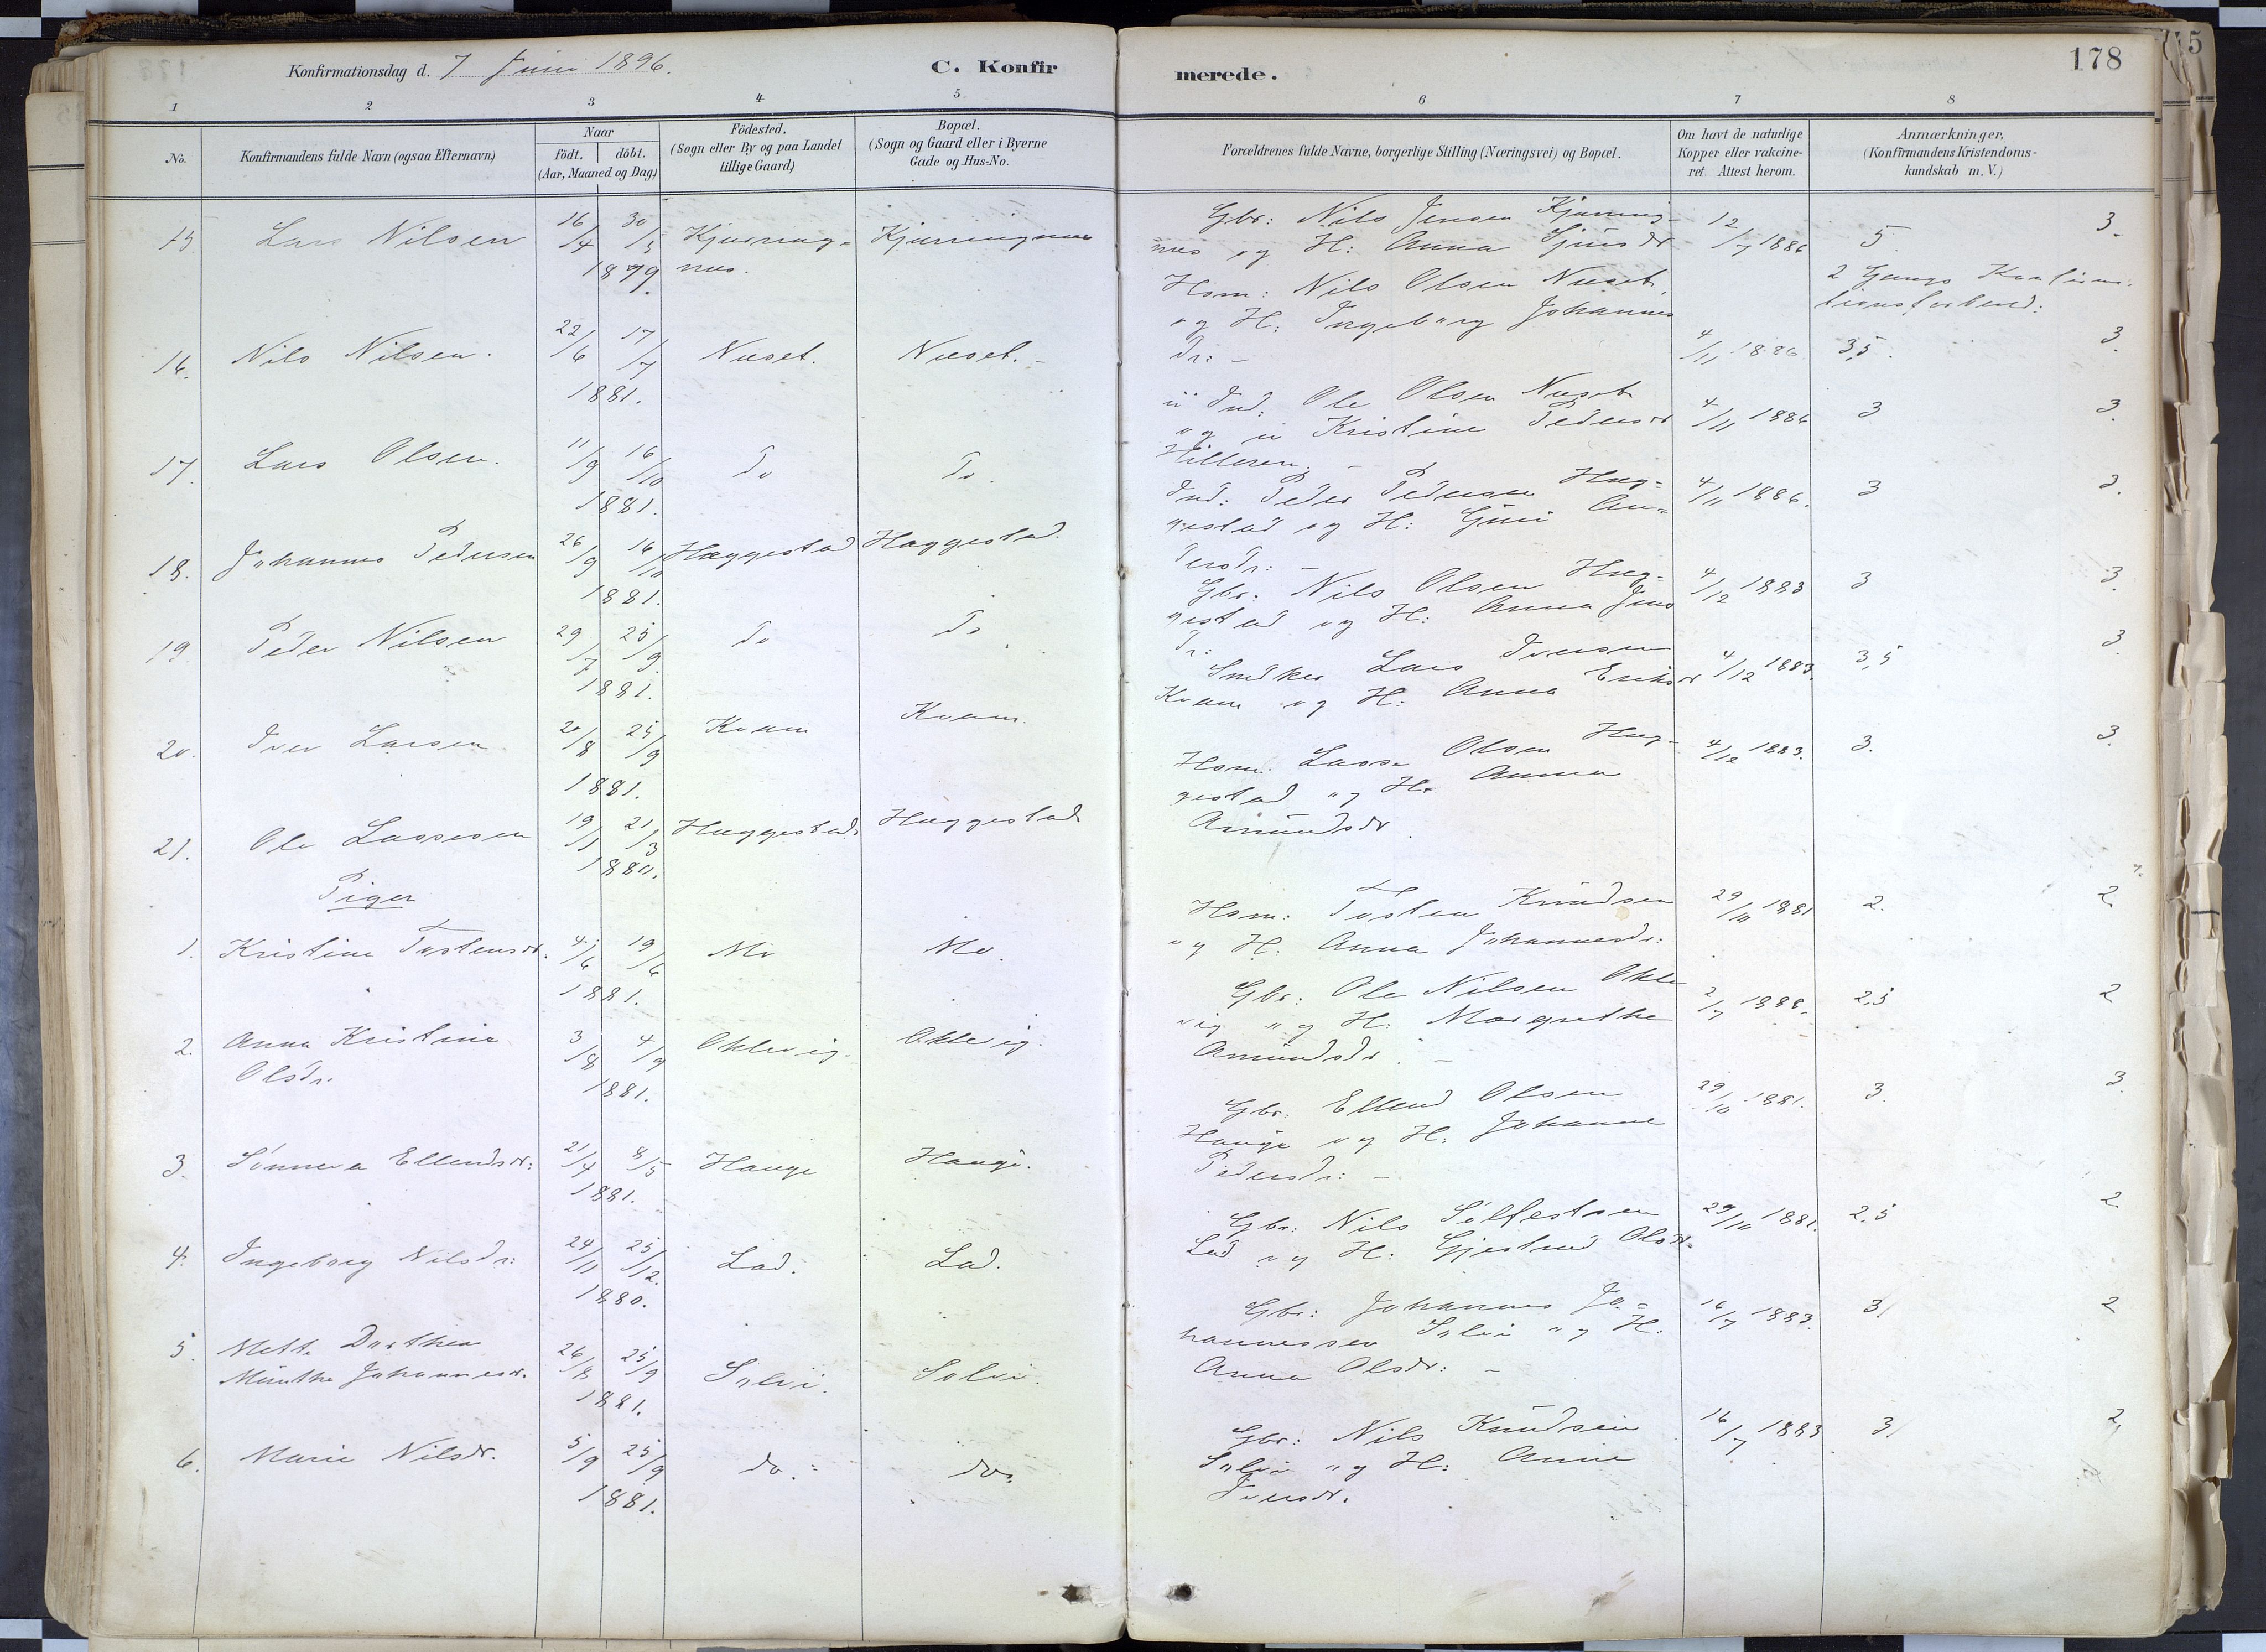 Konfirmationsdag d. 7 Juni 1896.
C. Konfirmerede.
178
1 2 3 4 5 6 7 8
No.
Konfirmandens fulde Navn (ogsaa Efternavn)
Naar
födt. döbt.
(Aar, Maaned og Dag)
Födested.
(Sogn eller By og paa Landet
tillige Gaard)
Bopæl.
(Sogn og Gaard eller i Byerne
Gade og Hus-No.
Forældrenes fulde Navne, borgerlige Stilling (Næringsvei) og Bopæl.
Om havt de naturlige
Kopper eller vakcine-
ret. Attest herom.
Anmærkninger.
(Konfirmandens Kristendoms-
kundskab m. V.)
15. Lars Nilsen 16/4 30/5 1879.
Gbr: Nils Jensen
og H: Anna 12/7 1886 5 3.
2 Gange
16. Nils Nilsen. 22/6 17/7 1881. Nueset. Nueset.-
Hsm: Nils Olsen Nueset,
og H: Ingeborg Johannes
dr:- 4/11 1886. 3,5. 3.
17. Lars Olsen. 11/9 16/10 1881. Do Do.
Ind: Ole Olsen Nueset
og Kristine Pedersdr
4/11 1886 3 3.
18. Johannes Pedersen 26/9 16/10 1881. Haggestad Haggestad.
Ind: Peder Pedersen Hag=
gestad og H: Guri An=
dersdr:- 4/11 1886. 3 3.
19. Peder Nilsen 29/7 25/9. 1881. Do Do.
Gbr: Nils Olsen Hag=
gestad og H: Anna Jens
dr: 4/12 1883 3 3.
20. Iver Larsen 20/8 25/9 1881. Kvam Kvam.
Snedker Lars Iversen
Kvam og H: Anna Eriksdr 4/12 1883. 3,5 3.
21. Ole Lassesen 19/1 21/3 1880. Haggestad Haggestad
Hsm. Lasse Olsen Hag-
gestad og H: Anna
Amundsdr. 4/12 1883. 3. 3.
Piger
1. Kristine Tostensdr. 4/6 19/6 1881. Mo Mo.
Hsm: Tosten Knudsen
og H: Anna Johannesdr: 29/10 1881 2. 2.
2. Anna Kristine
Olsdr. 3/8 4/9 1881. Oklevig. Oklevig.
Gbr: Ole Nilsen Okle
vig og H: Margrethe
Amundsdr.- 2/7 1888. 2,5 2
3. Sønneva Ellendsdr: 21/4 8/5 1881. Hauge Hauge.
Gbr: Ellend Olsen
Hauge og H: Johanne
Pedersdr:- 29/10 1881. 3. 3.
4. Ingeborg Nilsdr: 24/11 25/12. 1880. Lad. Lad.
Gbr: Nils Sjelfestsen
Lad og H: Gjertrud Olsdr. 29/10 1881. 2,5 2
5. Mette Dorthea
Munthe Johannesdr. 26/8 25/9 1881. Solvi. Solvi.
Gbr: Johannes Jo=
hannessen Solvi og H.
Anna Olsdr:- 16/7 1883. 3 2
6. Marie Nilsdr. 5/9 25/9 1881. do. do.
Gbr: Nils Knudsen
Solvi og H: Anne
Iversdr. 16/7 1883 3 2,